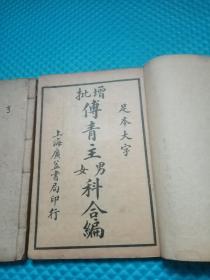 足本大字
增批傅青主男女科合編
上海廣益書局印行